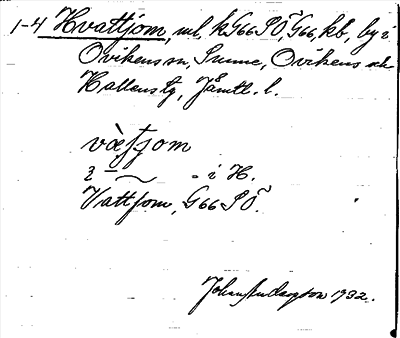 1-4 Hvattjom, ml, kG66SÖ, G66, kb, by i
Ovikens sn, Sunne, Ovikens och
Hallens tg, Jämtl. l.
vàtjom
2 - ~ - i H.
Vattjom, G66SÖ.
Johan Andersson 1932.